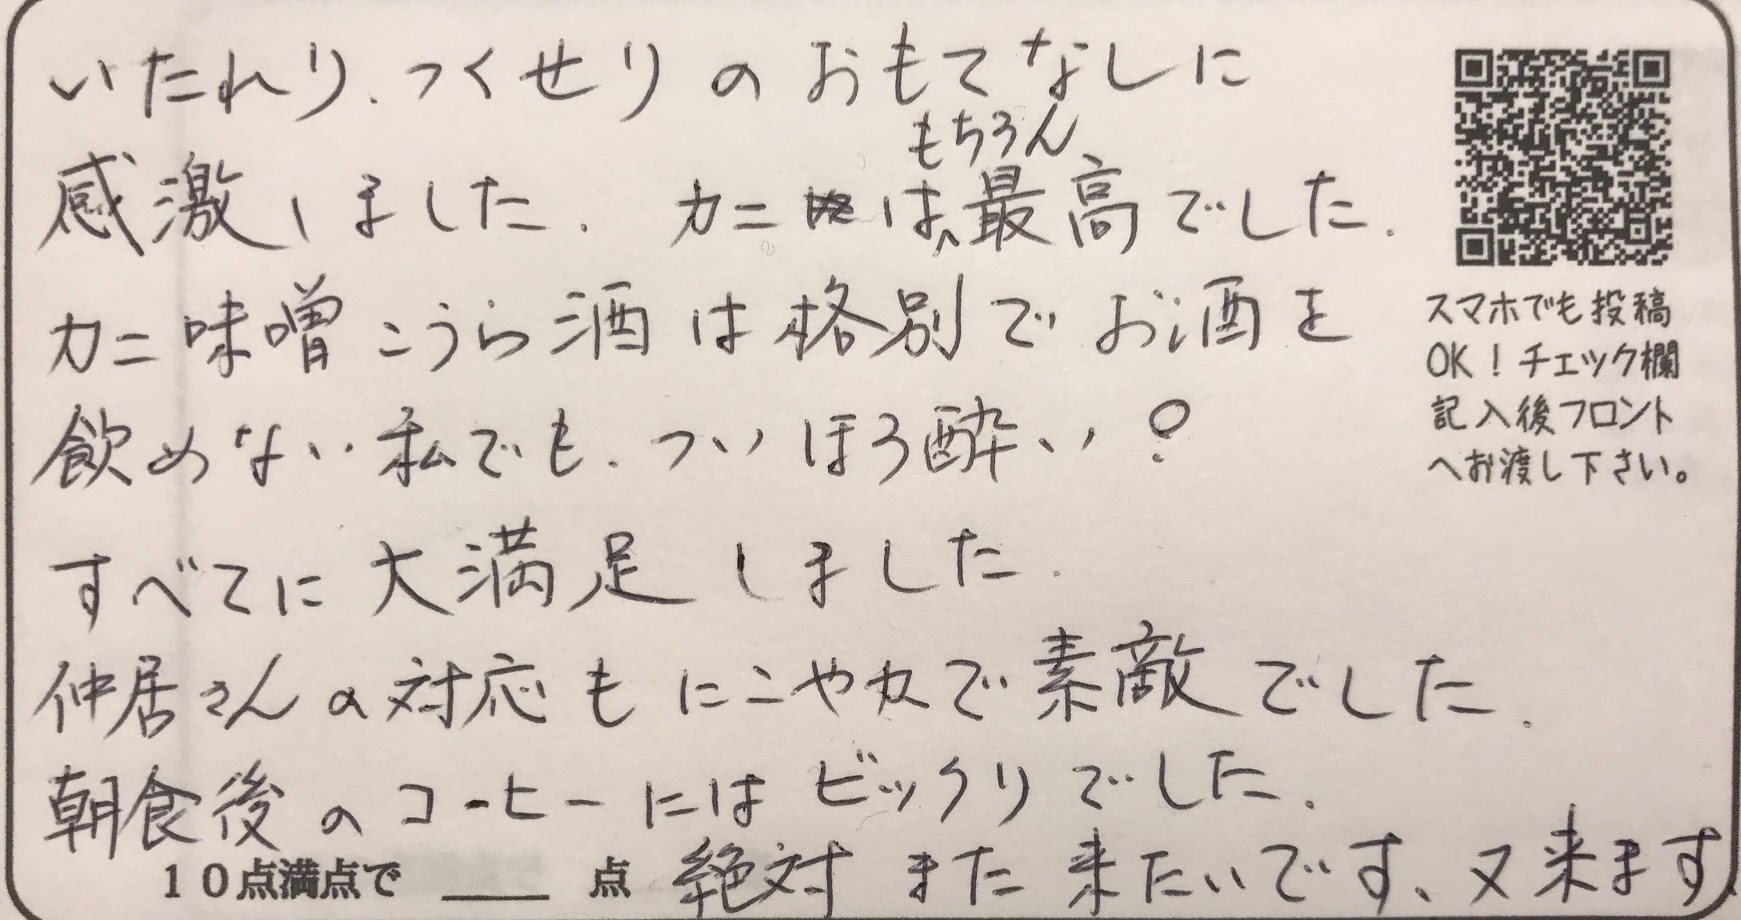 いたれり、つくせりのおもてなしに
感激しました。カニはもちろん最高でした。
カニ味噌こうら酒は格別でお酒を
飲めない私でも、ついほろ酔い?
すべてに大満足しました。
仲居さんの対応もにこやカで素敵でした。
朝食後のコーヒーにはビックリでした。
絶対また来たいです、又来ます
10点満点で ___ 点
スマホでも投稿
OK!チェック欄
記入後フロント
へお渡し下さい。